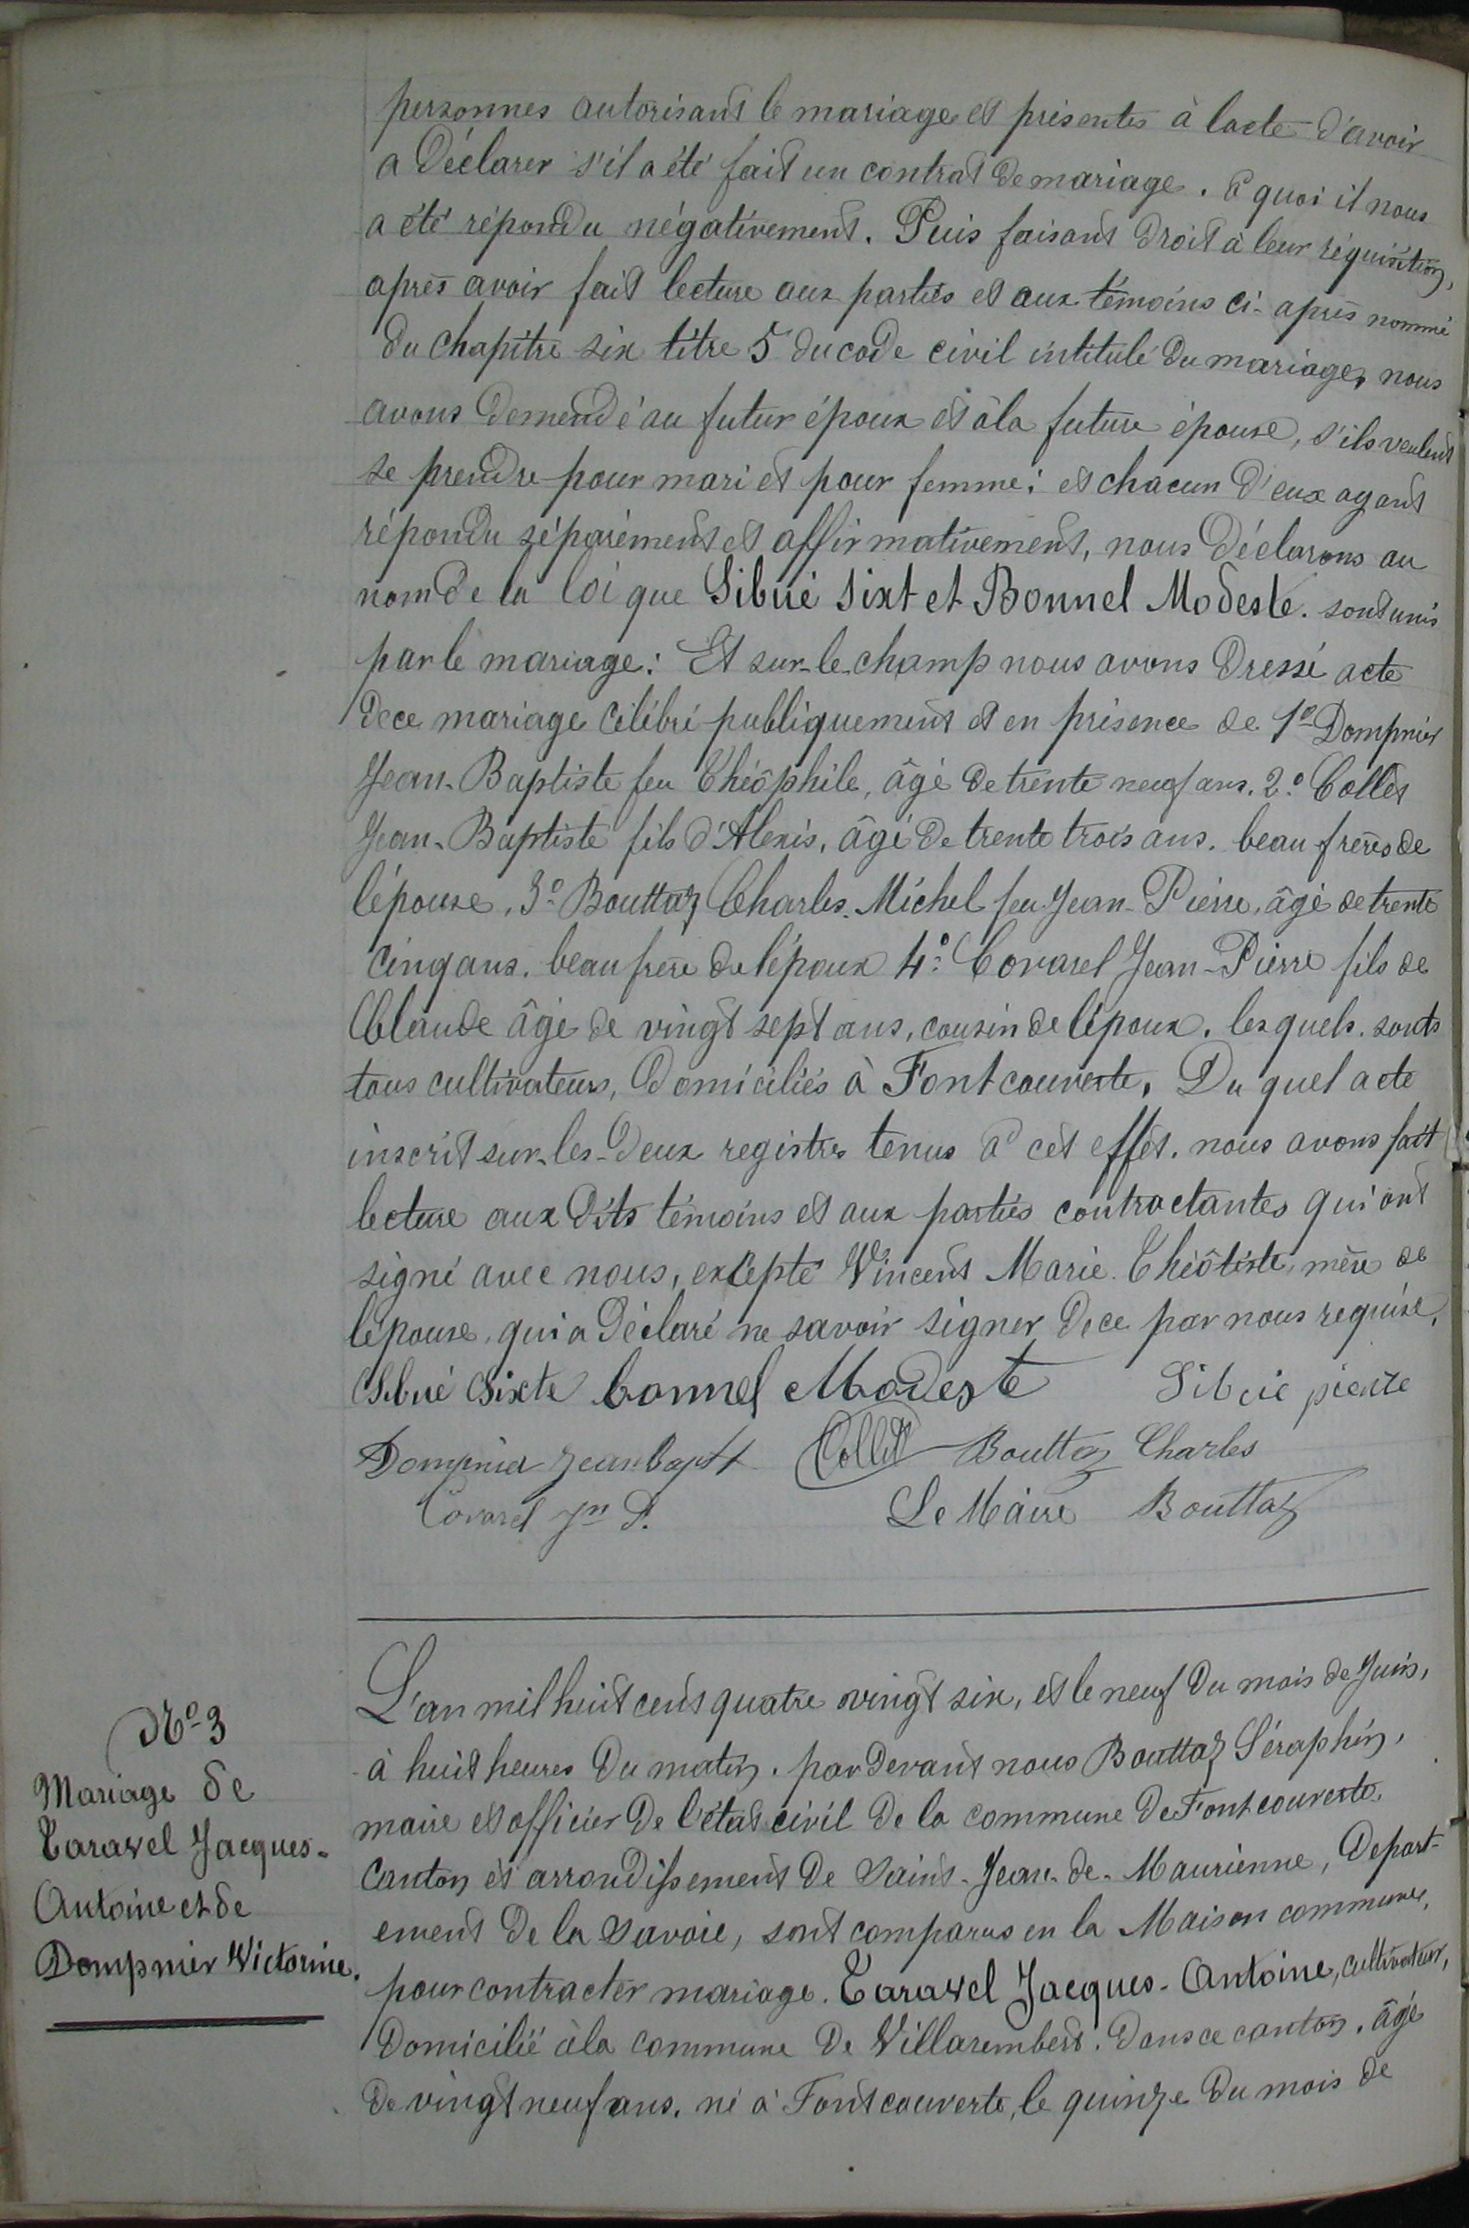 personnes autorisant le mariage et présentes à lacte d'avoir
a Déclarer s'il a été fait un contrat de mariage. à quoi il nous
a été répondu négativement. Puis faisant droit à leur réquisition,
après avoir fait lecture aux parties et aux témoins ci-après nommé
du chapitre six titre 5 du code civil intitulé du mariage, nous
avons demendé au futur époux et à la future épouse, s'ils veulent
se prendre pour mari et pour femme; et chacun d'eux ayant
répondu séparément et affirmativement, nous déclarons au
nom de la loi que Sibué Sixt et Bonnel Modeste. sont unis
par le mariage: Et sur-le-champ nous avons Dressé acte
de ce mariage célébré publiquement et en présence de 1º Dompnier
Jean-Baptiste feu Théophile, âgé de trente neuf ans. 2º Collet
Jean-Baptiste fils d'Alexis, âgé de trente trois ans. beau frères de
l'épouse, 3º Bouttaz Charles Michel feu Jean-Pierre, âgé de trente
cinq ans. beau frère de l'époux 4º Covarel Jean-Pierre fils de
Claude âgé de vingt sept ans, cousin de l'époux. lesquels sonts
tous cultivateurs, Domiciliés à Fontcouverte. Du quel acte
inscrit sur-les-Deux registres tenus à cet effet. nous avons fait
lecture aux Dits témoins et aux parties contractantes qui ont
signé avec nous, excepté Vincent Marie Théôtiste, mère de
l'épouse, qui a Déclaré ne savoir signer de ce par nous requise,
Sibué Sixte bonnel Modeste Sibué pierre
Dompnier jean bapt Collet Bouttaz Charles
Covarel Jn P. Le Maire Bouttaz
Nº 3
Mariage de
Taravel Jacques-
Antoine et de
Dompnier Victorine.
L'an mil huit cent quatre vingt six, et le neuf du mois de Juin,
à huit heures du matin. par devant nous Bouttaz Séraphin,
maire et officier de l'état civil de la commune de Fontcouverte.
Canton et arrondissement de Saint-Jean-de-Maurienne, Depart-
ement de la Savoie, sont comparus en la Maison commune,
pour contracter mariage. Taravel Jacques-Antoine, cultivateur,
Domicilié à la commune de Villarembert. dans ce canton. âgé
de vingt neuf ans. né à Fontcouverte, le quinze du mois de